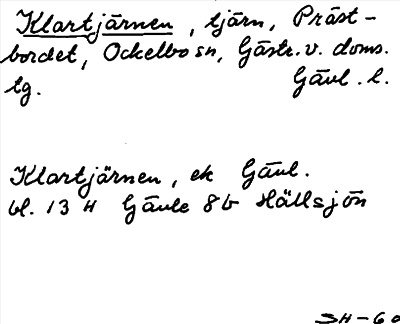 Klartjärnen, tjärn, Präst-
bordet, Ockelbo sn, Gästr. v. doms.
tg. Gävl. l.
Klartjärnen, ek Gävl.
bl. 13 H Gävle 8b Hällsjön
SH-60